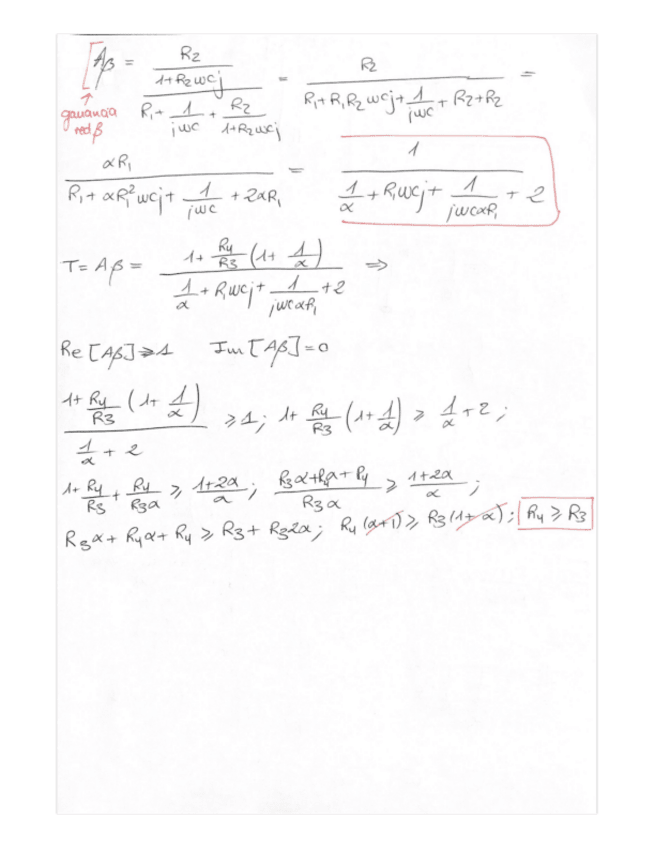 Aβ = R2/(1+R2wCj) / (R1 + 1/(jwC) + R2/(1+R2wCj)) = R2 / (R1+R1R2wCj + 1/(jwC) + R2+R2) =
ganancia
red β
αR1 / (R1 + αR1²wCj + 1/(jwC) + 2αR1) = 1 / (1/α + R1wCj + 1/(jwCαR1) + 2)
T = Aβ = (1 + R4/R3 (1 + 1/α)) / (1/α + R1wCj + 1/(jwCαR1) + 2) ⇒
Re[Aβ] ≥ 1 Im[Aβ] = 0
(1 + R4/R3 (1 + 1/α)) / (1/α + 2) ≥ 1; 1 + R4/R3 (1 + 1/α) ≥ 1/α + 2;
1 + R4/R3 + R4/(R3α) ≥ (1+2α)/α; (R3α+R4α+R4)/(R3α) ≥ (1+2α)/α;
R3α + R4α + R4 ≥ R3 + R32α; R4(α+1) ≥ R3(1+α); R4 ≥ R3